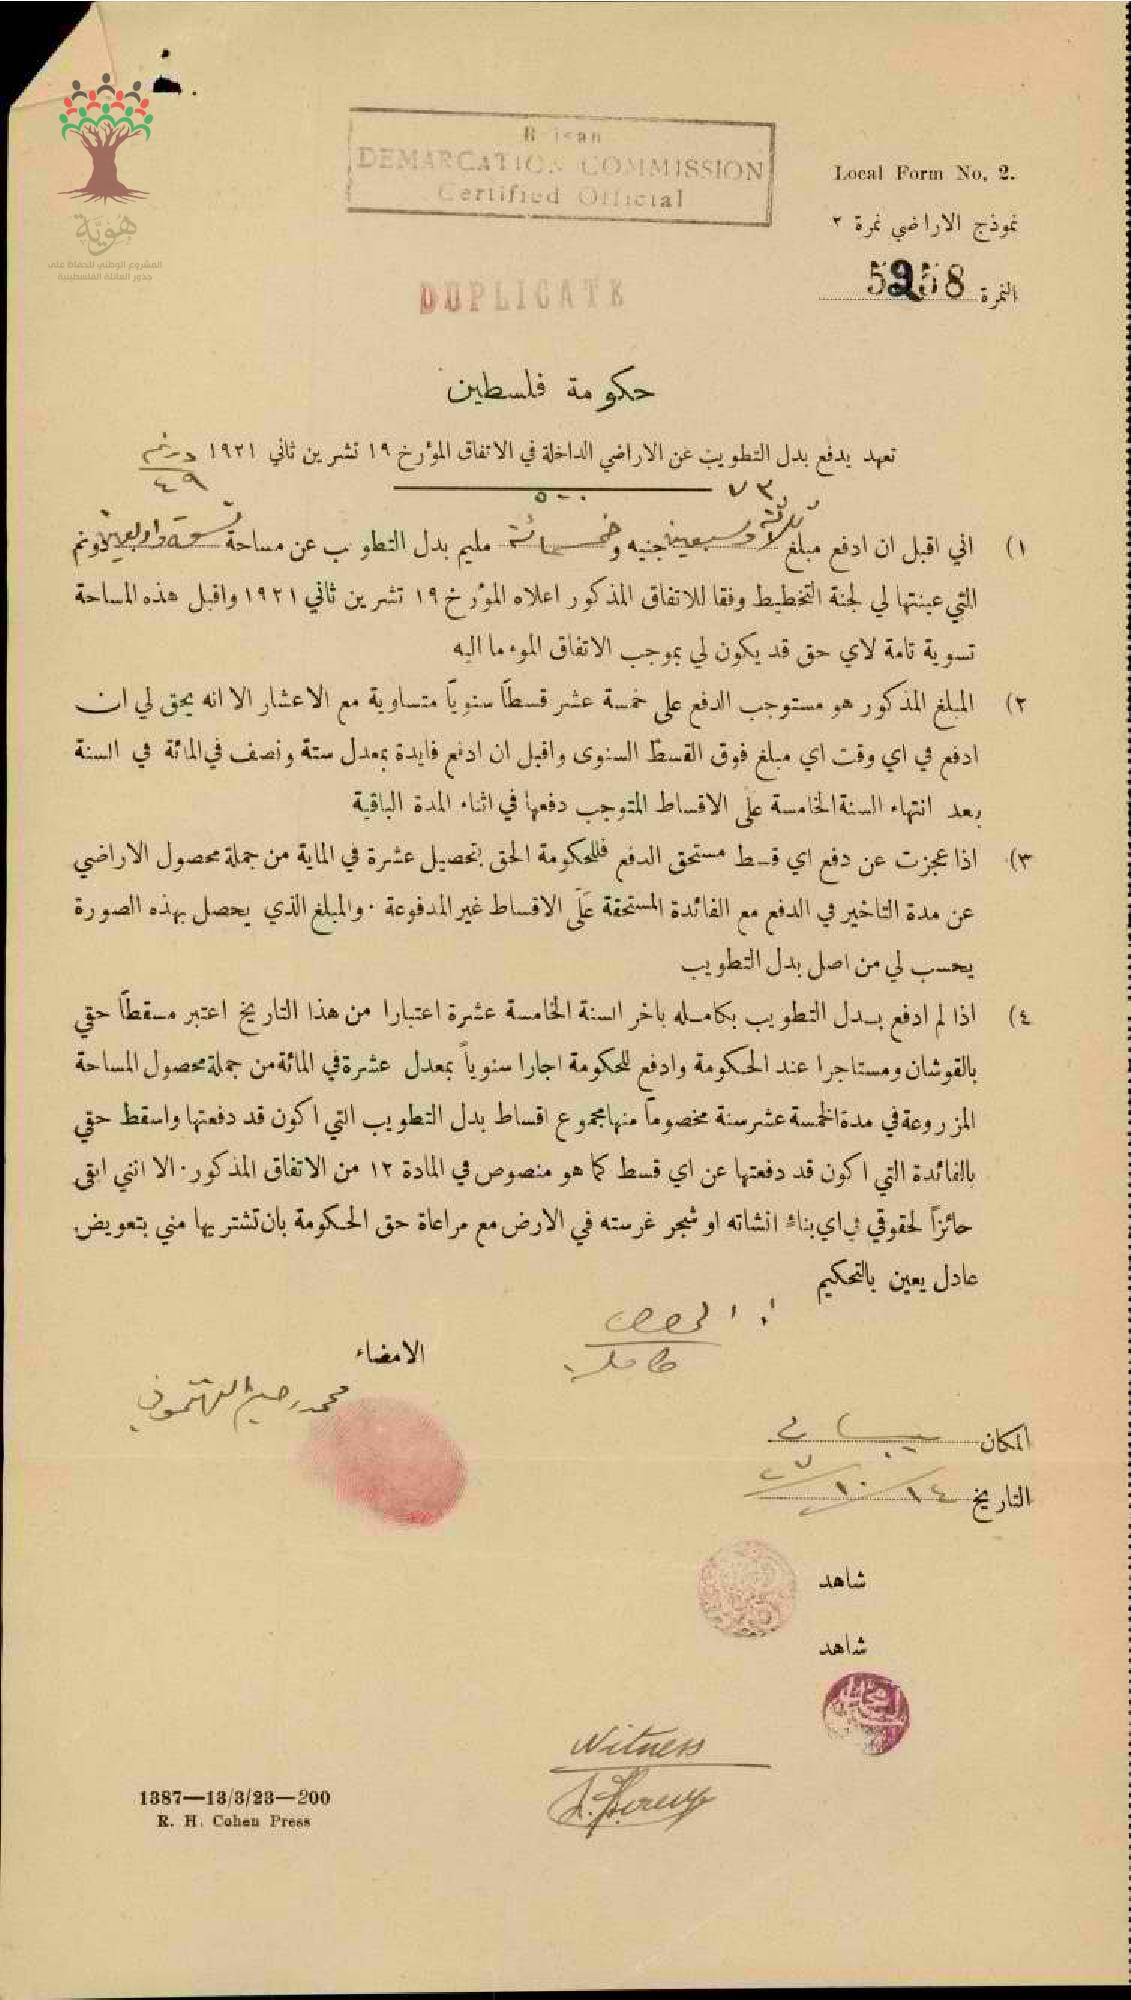 Beisan
DEMARCATION COMMISSION
Certified Official
Local Form No. 2.
نموذج الاراضي نمرة ٢
النمرة 5258
DUPLICATE
هُوِيَّة
المشروع الوطني للحفاظ على
جذور العائلة الفلسطينية
حكومة فلسطين
تعهد بدفع بدل التطويب عن الاراضي الداخلة في الاتفاق المؤرخ ١٩ تشرين ثاني ١٩٢١
دونم
٤٩
٧٣
٥٠٠
١) اني اقبل ان ادفع مبلغ ثلاثة وسبعين جنيه وخمسمائة مليم بدل التطويب عن مساحة تسعة واربعين دونم
التي عينتها لي لجنة التخطيط وفقا للاتفاق المذكور اعلاه المؤرخ ١٩ تشرين ثاني ١٩٢١ واقبل هذه المساحة
تسوية تامة لاي حق قد يكون لي بموجب الاتفاق الموء ما اليه
٢) المبلغ المذكور هو مستوجب الدفع على خمسة عشر قسطاً سنوياً متساوية مع الاعشار الا انه يحق لي ان
ادفع في اي وقت اي مبلغ فوق القسط السنوى واقبل ان ادفع فايدة بمعدل ستة ونصف في المائة في السنة
بعد انتهاء السنة الخامسة على الاقساط المتوجب دفعها في اثناء المدة الباقية
٣) اذا عجزت عن دفع اي قسط مستحق الدفع فللحكومة الحق بتحصيل عشرة في الماية من جملة محصول الاراضي
عن مدة التاخير في الدفع مع الفائدة المستحقة على الاقساط غير المدفوعة . والمبلغ الذي يحصل بهذه الصورة
يحسب لي من اصل بدل التطويب
٤) اذا لم ادفع بدل التطويب بكامله باخر السنة الخامسة عشرة اعتبارا من هذا التاريخ اعتبر مسقطاً حقي
بالقوشان ومستاجرا عند الحكومة وادفع للحكومة اجارا سنوياً بمعدل عشرة في المائة من جملة محصول المساحة
المزروعة في مدة الخمسة عشر سنة مخصوماً منها مجموع اقساط بدل التطويب التي اكون قد دفعتها واسقط حقي
بالفائدة التي اكون قد دفعتها عن اي قسط كما هو منصوص في المادة ١٢ من الاتفاق المذكور . الا انني ابقى
حائزاً لحقوقي في اي بناءٍ انشاته او شجر غرسته في الارض مع مراعاة حق الحكومة بان تشتريها مني بتعويض
عادل يعين بالتحكيم
الامضاء
محمد
المكان بيسان
التاريخ ١٤/١٠/٢٧
شاهد
شاهد
Witness
1387—13/3/23—200
R. H. Cohen Press